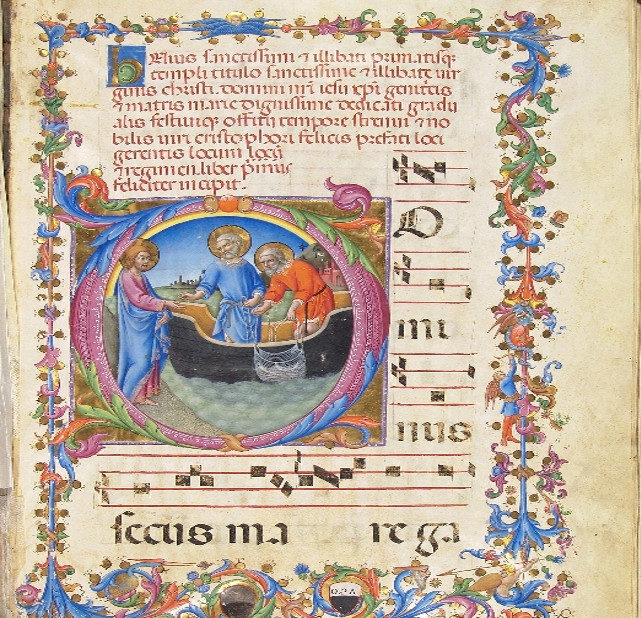 Huius sanctissimi ⁊ illibati primatisq;
templi titulo sanctissime ⁊ illibate vir
ginis christi. domini nri iesu xpi genitricis
⁊ matris marie dignissime dedicati gradu
alis festiuiq; offitij tempore strenui ⁊ no
bilis uiri cristophori felicis prefati loci
gerentis locum
⁊ regimen. liber primus
feliciter incipit.
D
mi
nus
secus ma re ga
O.P.A